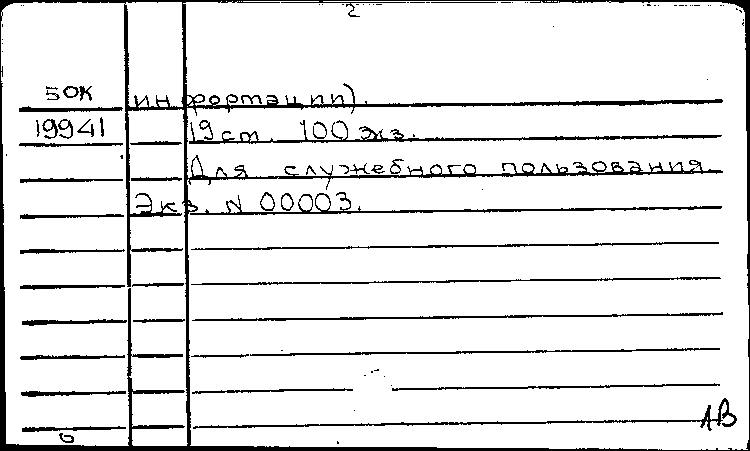 2
БОК информации).
19941 19 ст. 100 экз.
Для служебного пользования.
Экз. N 00003.
АВ